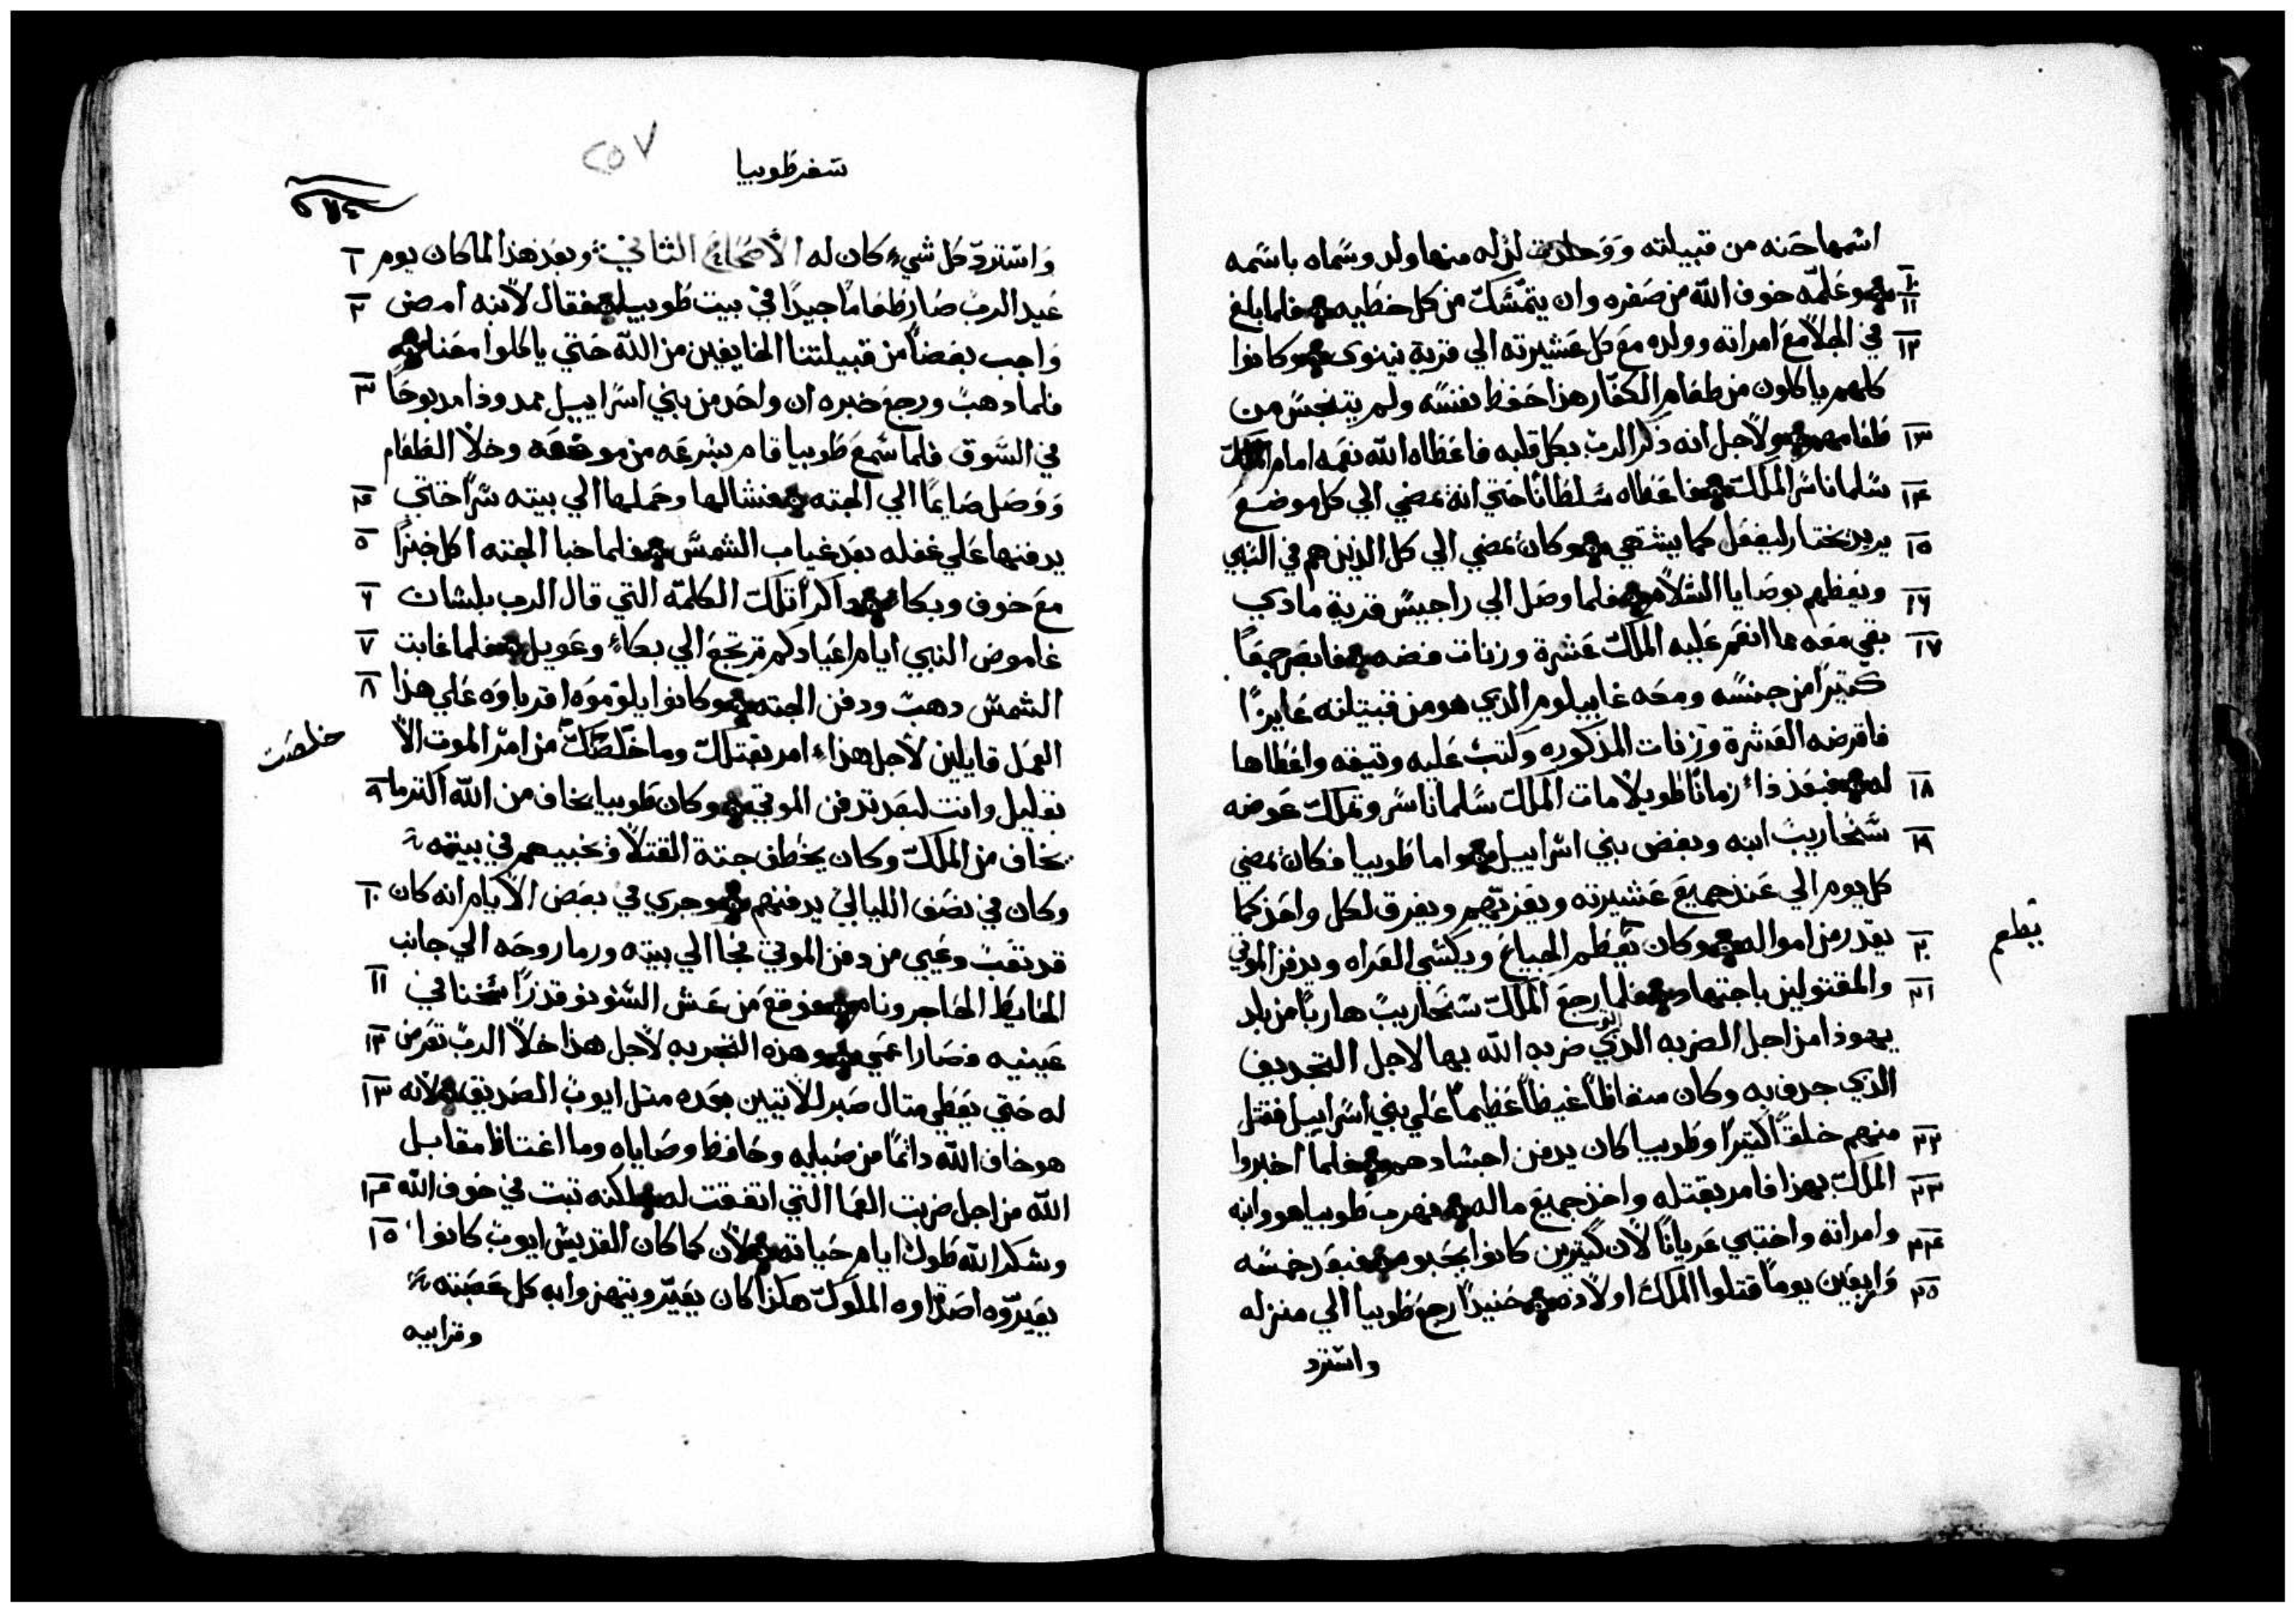 اسمها حنه من قبيلته ووحلدت لزله منها ولد وسماه باسمه
١٠
١١
وعلمه خوف الله من صغره وان يتمسك من كل خطيه فلما بلغ
١٢
في الجلا مع امراته وولده مع كل عشيرته الي قرية نينوى وكانوا
كلهم ياكلون من طعام الكفار هذا حفظ نفسه ولم يتنجس من
١٣
طعامهم ولاجل انه ذكر الرب بكل قلبه فاعطاه الله نعمه امام الملك
١٤
سلماناسر الملك فاعطاه سلطانا حتي انه يمضي الي كل موضع
١٥
يريد يختار ليفعل كما يشتهي وكان يمضي الي كل الذين هم في السبي
١٦
ويعظهم بوصايا السلام فلما وصل الي راجيس قرية مادي
١٧
بقي معه مما انعم عليه الملك عشرة وزنات فضه فابصر جمعا
كتيرا من جنسه ومعه غابيلوم الدي هو من قبيلته عايزا
فاقرضه العشرة وزنات المذكوره وكتب عليه وتيقه واعطاها
١٨
له فبعد ذا زمانا طويلا مات الملك سلماناسر وتملك عوضه
١٩
سنحاريب ابنه وبغض بني اسراييل واما طوبيا فكان يمضي
كل يوم الي عند جميع عشيرته ويعزيهم ويفرق لكل واحد كما
٢٠
يقدر من امواله وكان يعظم الجياع ويكسي العراه ويدفن الموتي
يطعم
٢١
والمقتولين باجتهاد فلما رجع الملك سنحاريب هاربا من بلد
يهوذا من اجل الضربه الدي ضربه الله بها لاجل التجديف
الذي جدف به وكان مغتاظا غيظا عظيما علي بني اسراييل فقتل
٢٢
منهم خلقا كتيرا وطوبيا كان يدفن اجسادهم فلما اخبروا
٢٣
الملك بهذا فامر بقتله واخذ جميع ماله فهرب طوبيا هو وابنه
٢٤
وامراته واختبي عريانا لان كتيرين كانوا يحبوه فبعد خمسه
٢٥
واربعين يوما قتلوا الملك اولاده حنيدا رجع طوبيا الي منزله
واسترد
سفر طوبيا
٢٥٧
واسترد كل شيء كان له الاصحاح الثاني وبعد هذا لما كان يوم
١
عيد الرب صار طعاما جيدا في بيت طوبيا فقال لابنه امض
٢
واجب بعضا من قبيلتنا الخايفين من الله حتي ياكلوا معنا
فلما دهب ورجع خبره ان واحد من بني اسراييل ممدودا مدبوحا
٣
في السوق فلما سمع طوبيا قام بسرعه من موضعه وخلا الطعام
ووصل صايما الي الجته فنشالها وحملها الي بيته سرا حتي
٤
يدفنها علي غفله بعد غياب الشمس فلما خبا الجته اكل خبزا
٥
مع خوف وبكاء داكرا تلك الكلمه التي قال الرب بلسان
٦
غاموض النبي ايام اعيادكم ترتجع الي بكاء وعويل فلما غابت
٧
الشمس دهب ودفن الجته وكانوا يلوموه اقرباوه علي هذا
٨
العمل قايلين لاجل هذا امر بقتلك وما خلصك من امر الموت الا
خلصت
بقليل وانت لبعد تدفن الموتي وكان طوبيا يخاف من الله اكتر ما
٩
يخاف من الملك وكان يخطف جتة القتلا ويخبيهم في بيته
وكان في نصف الليالي يدفنهم وجري في بعض الايام انه كان
١٠
قد تعب وعيي من دفن الموتي فجا الي بيته ورما روحه الي جانب
الحايط الحاجر ونام فوقع من عش السنونو قدرا سخنا في
١١
عينيه فصار اعمي وهذه التجربه لاجل هذا خلا الرب تعرض
١٢
له حتي يعطي متال صبر للاتيين بعده متل ايوب الصديق لانه
١٣
هو خاف الله دائما من صبايه وحافظ وصاياه وما اغتاظ مقابل
الله من اجل ضربت العما التي اتفقت له لكنه تبت في خوف الله
١٤
وشكر الله طول ايام حياته لان كما كان القديس ايوب كانوا
١٥
يعيروه اصدقاوه الملوك هكذا كان يعير ويتهزوا به كل عصبته
وقرابيه